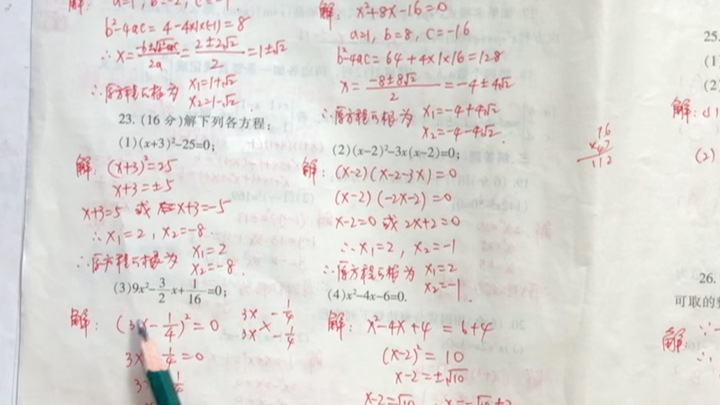 b²-4ac = 4-4×1×(-1)=8
∴ x = (-b±√b²-4ac)/2a = (2±2√2)/2 = 1±√2
∴原方程的根为 x₁=1+√2
x₂=1-√2
解: x²+8x-16=0
a=1, b=8, c=-16
b²-4ac = 64+4×1×16=128
x = (-8±8√2)/2 = -4±4√2
∴原方程的根为 x₁=-4+4√2
x₂=-4-4√2.
23. (16 分)解下列各方程:
(1)(x+3)²-25=0;
解: (x+3)²=25
x+3=±5
x+3=5 或 x+3=-5
∴ x₁=2, x₂=-8
∴原方程的根为 x₁=2
x₂=-8.
(2)(x-2)²-3x(x-2)=0;
解: (x-2)(x-2-3x)=0
(x-2)(-2x-2)=0
x-2=0 或 2x+2=0
∴ x₁=2, x₂=-1
∴原方程的根为 x₁=2
x₂=-1.
(3)9x²-3/2x+1/16=0;
解: (3x-1/4)²=0
3x -1/4
3x -1/4
3x-1/4=0
(4)x²-4x-6=0.
解: x²-4x+4=6+4
(x-2)²=10
x-2=±√10
25.
(1)
(2)
解:
16
×7
112
(2)
26.
可取的
解: